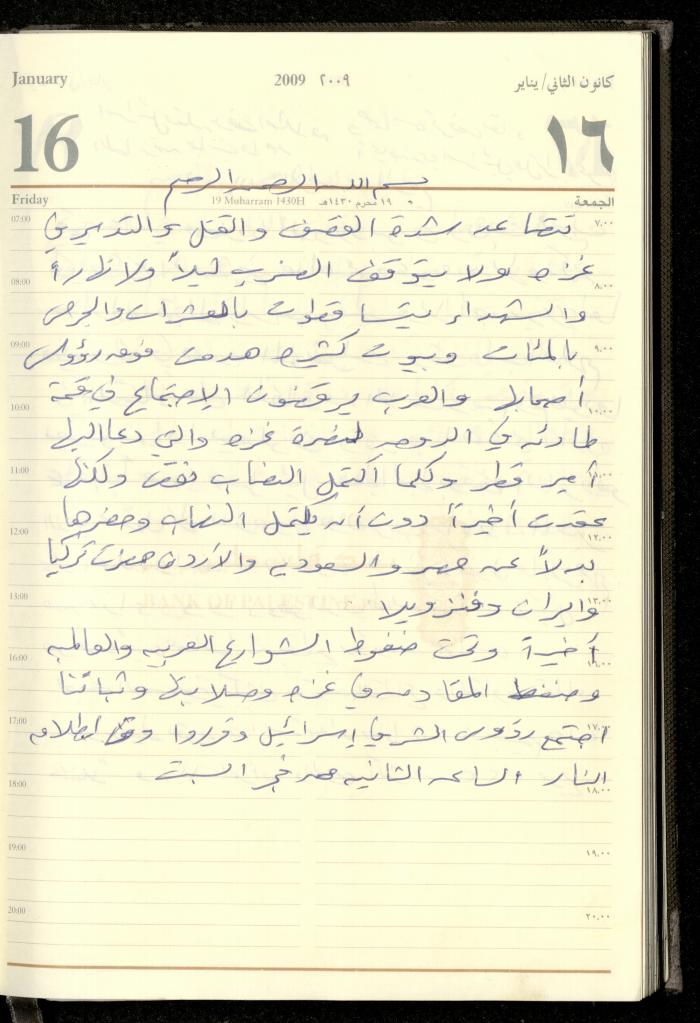 January 2009 ٢٠٠٩ كانون الثاني/يناير
16 ١٦
بسم الله الرحمن الرحيم
Friday 19 Muharram 1430H ١٩ محرم ١٤٣٠هـ الجمعة
07:00 تتصاعد شدة القصف والقتل والتدمير في ٧,٠٠
غزه ولا يتوقف الضرب ليلاً ولا نهاراً
08:00 ٨,٠٠
والشهداء يتساقطون بالعشرات والجرحى
09:00 بالمئات وبيوت كثيره هدمت فوق رؤوس ٩,٠٠
أصحابها والعرب يرفضون الاجتماع في قمة
10:00 ١٠,٠٠
طارئه في الدوحه لنصرة غزه والتي دعا اليها
11:00 أمير قطر وكلما اكتمل النصاب نقص ولكنها ١١,٠٠
عقدت أخيراً دون أن يكتمل النصاب وحضرها
12:00 ١٢,٠٠
بدلاً عن مصر والسعوديه والأردن حضرت تركيا
13:00 وايران وفنزويلا ١٣,٠٠
أخيراً وتحت ضغوط الشوارع العربيه والعالميه
16:00
وضغط المقاومه في غزه وصلابتها وثباتنا
17:00 اجتمع رؤوس الشر في إسرائيل وقرروا وقف اطلاق ١٧,٠٠
النار الساعه الثانيه من فجر السبت
18:00 ١٨,٠٠
19:00 ١٩,٠٠
20:00 ٢٠,٠٠
BANK OF PALESTINE